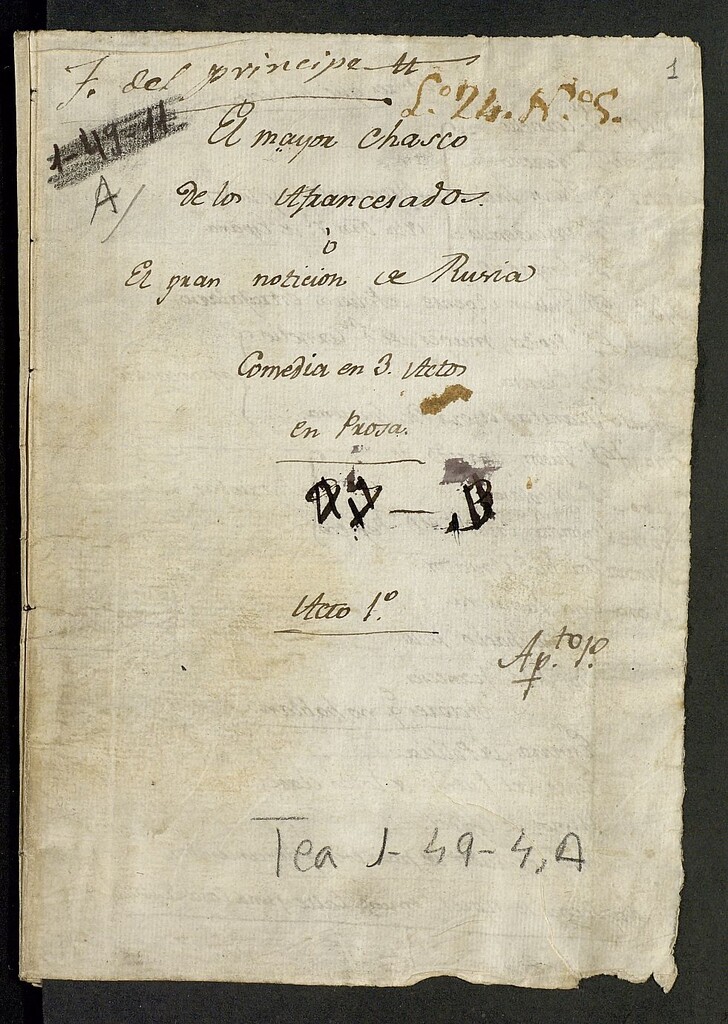 1
F. del principe
L.º 24. N.º 5.
1-49-11
A/
El mayor chasco
de los Afrancesados.
ò
El gran noticion de Rusia
Comedia en 3. Actos
en Prosa.
B
Acto 1.º
Ap.to 1.º
Tea 1-49-4, A